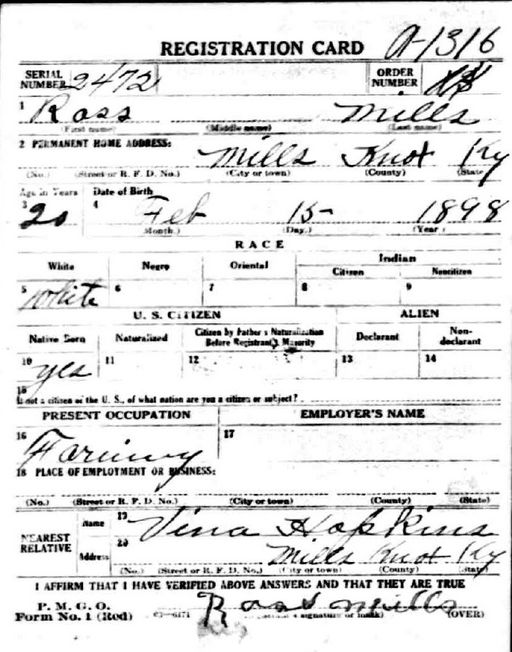 REGISTRATION CARD A-1316
SERIAL NUMBER 2472 ORDER NUMBER
1 Ross Mills
(First name) (Middle name) (Last name)
2 PERMANENT HOME ADDRESS: Mills Knox Ky
(No.) (Street or R. F. D. No.) (City or town) (County) (State)
Age in Years Date of Birth
3 20 4 Feb 15 1898
(Month.) (Day.) (Year)
RACE
White Negro Oriental Indian
Citizen Noncitizen
5 White 6 7 8 9
U. S. CITIZEN ALIEN
Native Born Naturalized Citizen by Father's Naturalization Before Registrant's Majority Declarant Non-declarant
10 yes 11 12 13 14
15
If not a citizen of the U. S., of what nation are you a citizen or subject?
PRESENT OCCUPATION EMPLOYER'S NAME
16 Farming 17
18 PLACE OF EMPLOYMENT OR BUSINESS:
(No.) (Street or R. F. D. No.) (City or town) (County) (State)
NEAREST RELATIVE Name 19 Vina Hopkins
Address 20 Mills Knox Ky
(No.) (Street or R. F. D. No.) (City or town) (County) (State)
I AFFIRM THAT I HAVE VERIFIED ABOVE ANSWERS AND THAT THEY ARE TRUE
P. M. G. O.
Form No. 1 (Red) Ross Mills
signature or mark) (OVER)